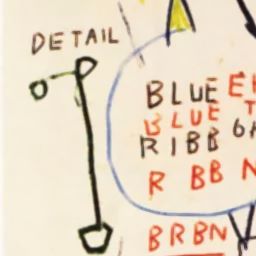 DETAIL
BLUE E
BLUE T
RIBB
R BB N
BRBN